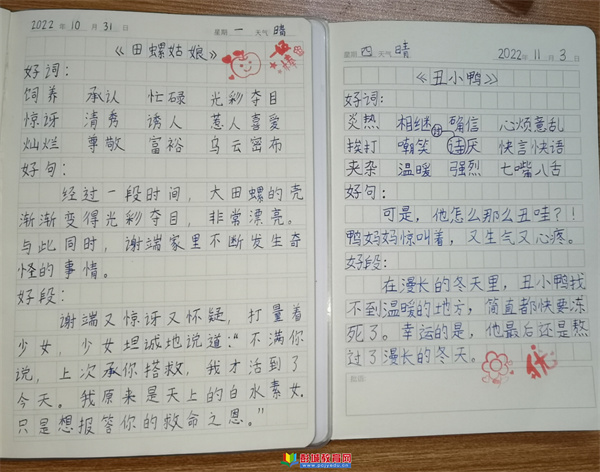 2022 年 10 月 31 日 星期 一 天气 晴
《田螺姑娘》
好词:
饲养 承认 忙碌 光彩夺目
惊讶 清秀 诱人 惹人喜爱
灿烂 尊敬 富裕 乌云密布
好句:
经过一段时间,大田螺的壳
渐渐变得光彩夺目,非常漂亮。
与此同时,谢端家里不断发生奇
怪的事情。
好段:
谢端又惊讶又怀疑,打量着
少女,少女坦诚地说道:“不满你
说,上次承你搭救,我才活到了
今天。我原来是天上的白水素女.
只是想报答你的救命之恩。”
星期 四 天气 晴 2022年 11 月 3 日
《丑小鸭》
好词:
炎热 相继 确信 心烦意乱
挨打 嘲笑 讨厌 快言快语
夹杂 温暖 强烈 七嘴八舌
好句:
可是,他怎么那么丑哇?!
鸭妈妈惊叫着,又生气又心疼。
好段:
在漫长的冬天里,丑小鸭找
不到温暖的地方,简直都快要冻
死了。幸运的是,他最后还是熬
过了漫长的冬天。
优
彭城教育网
www.pcjyedu.cn